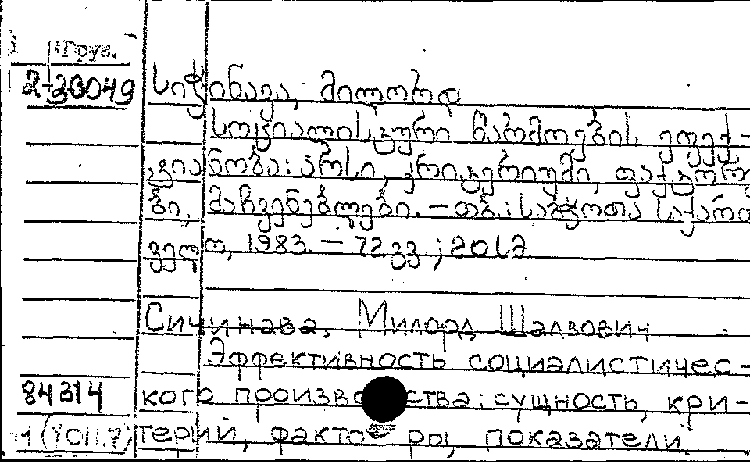 Груз.
2-30049 სიჭინავა, მილორდ
სოციალისტური წარმოების ეფექ-
ტიანობა: არსი, კრიტერიუმი, ფაქტორე-
ბი, მაჩვენებლები. – თბ.: საბჭოთა საქართ
ველო, 1983. – 72 გვ; 20სმ
Сичинава, Милорд Шалвович
Эффективность социалистичес-
84314 кого производства: сущность, кри-
терий, факторы, показатели.